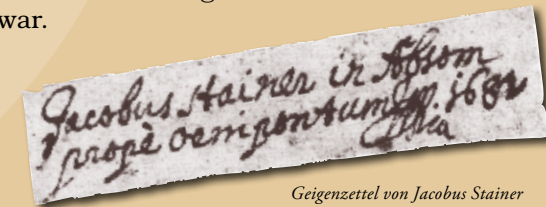 war.
Jacobus Stainer in Absom
prope oenipontum 16
Geigenzettel von Jacobus Stainer